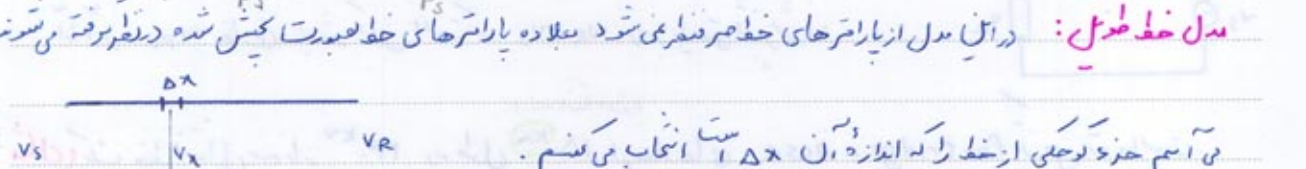 مدل خط طویل : در این مدل از پارامترهای خط صرفنظر نمی شود بعلاوه پارامترهای خط بصورت پخش شده در نظر گرفته می شوند
Δx
Vs Vx VR
می آئیم جزء کوچکی از خط را که اندازهٔ آن Δx است انتخاب می کنیم .